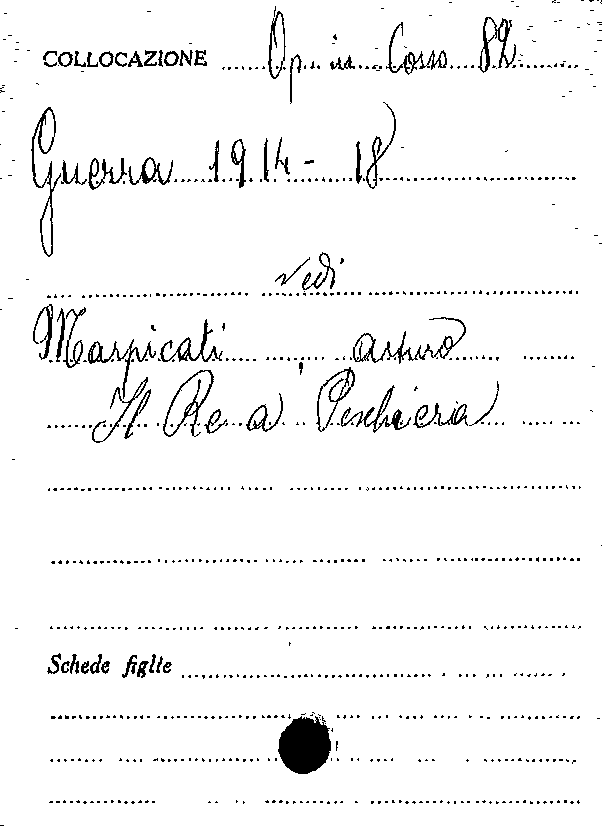 COLLOCAZIONE Op. in Cosso 82
Guerra 1914-18
vedi
Marpicati, Arturo
Il Re a Peschiera
Schede figlie